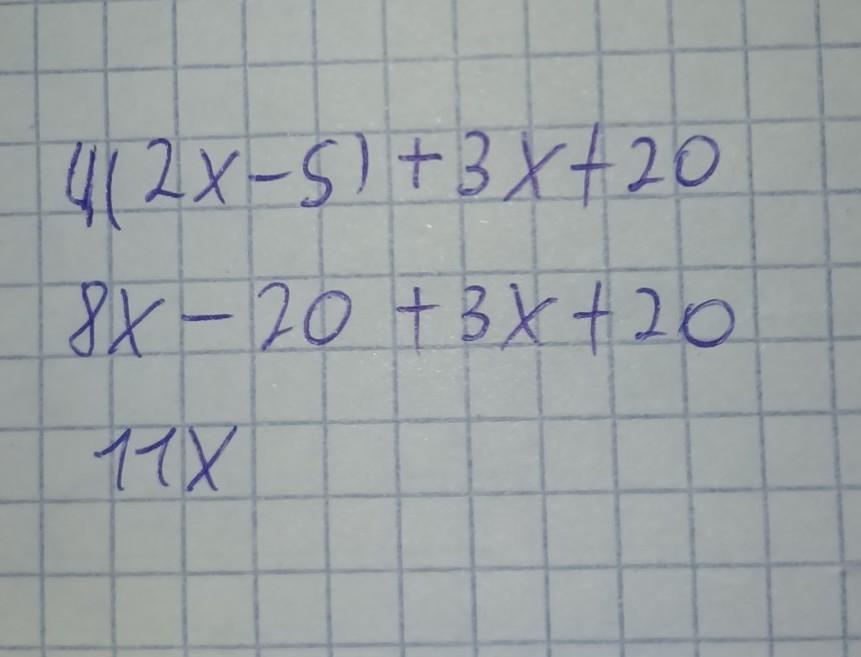 4(2x-5)+3x+20
8x-20+3x+20
11x